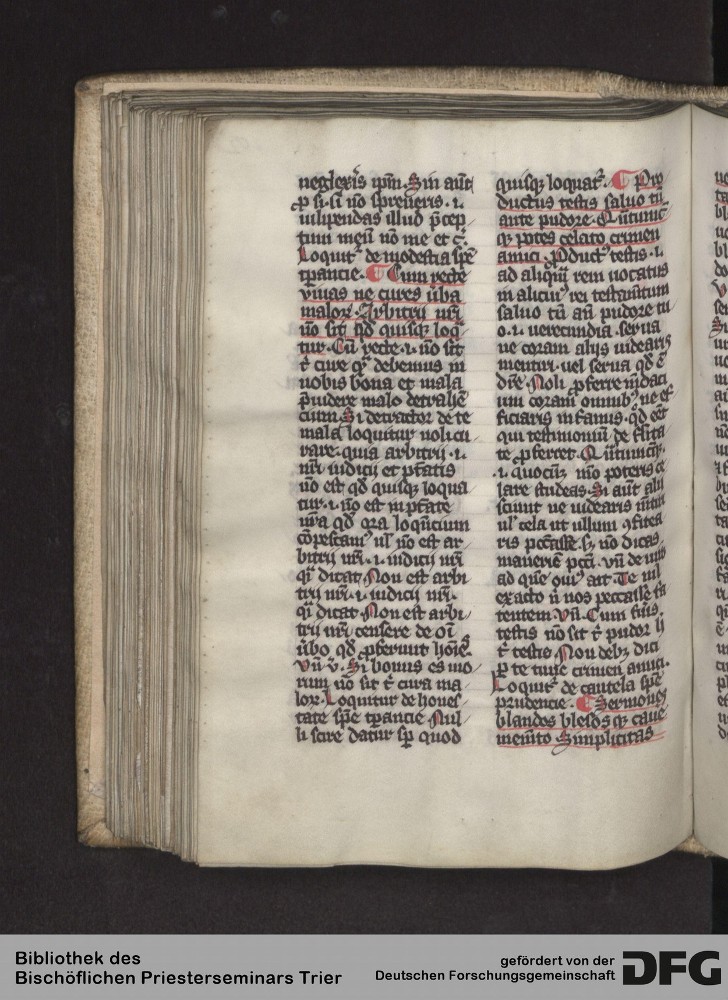 neglexeris ipm. Sin aut
p si. si no spreueris .i.
uilipendas illud p̄cep
tum meū no me et c̄.
Loquit᷑ de modestia spē
tꝑancie. Cum recte
viuas ne cures ūba
malorꝝ. Arbitrij nr̄i
nō sit qd quisqꝫ loq̄
tur. Cū recte .i. nō sit
t̄ cure qꝛ debemus in
nobis bona et mala
p̄uidere malo detrahē
cium. Si detractor de te
mala loquitur noli cu
rare. quia arbitrij .i.
nr̄i iudicij et ptātis
nō est qd quisqꝫ loqua
tur .i. nō est in ptāte
nr̄a qd ora loq̄ncium
cōpescam᷒ ul᷑ nō est ar
bitrij nr̄i .i. iudicij nr̄i
q̄ dicat Non est arbi
trij nr̄i .i. iudicij nr̄i.
q̄ dicat Non est arbi
trij nr̄i censere de oī
ūbo qd ꝓferunt hoīe.
Vn̄ v̄. Si bonus es mo
rum nō sit t̄ cura ma
lorꝝ. Loquitur de hones
tate spē tꝑancie Nul
li scire datur sꝑ quod
quisqꝫ loquat᷑. Pro
ductus testis saluo tn̄
ante pudore. Q̄ntumc̄
qꝫ potes celato crimen
amici. Product᷒ testis .i.
ad aliquā rem uocatus
in alicui᷒ rei testam̄tum
saluo tn̄ an̄ pudore tu
o .i. uerecundia. serua
ne coram alijs uidearis
mentiri. uel serua qd ē
dr̄e Noli ꝓferre m̄daci
um coram omnib᷒ ne ef
ficiaris infamis. qd eēt
qui testimoniū de fl̄ita
te ꝓferret. Q̄ntumcūqꝫ.
.i. quocūqꝫ mō poteris ce
lare studeas. Si aūt alij
sciunt ne uidearis m̄tiri
ul᷑ cela ut ullum ꝯfitea
ris pccāsse. sꝫ nō dicas
maneriē pccī. vn̄ de uno
ad quē
exacto n̄ nos peccasse fa
tentem. Vn̄. Cum fueris
testis nō sit t̄ pudor h
t̄ testis Non debꝫ dici
ꝑ te turpe crimen amici.
Loquit᷑ de cautela spē
prudencie. Sermones
blandos blesosqꝫ caue
mem̄to Simplicitas
Bibliothek des
Bischöflichen Priesterseminars Trier
gefördert von der
Deutschen Forschungsgemeinschaft
DFG